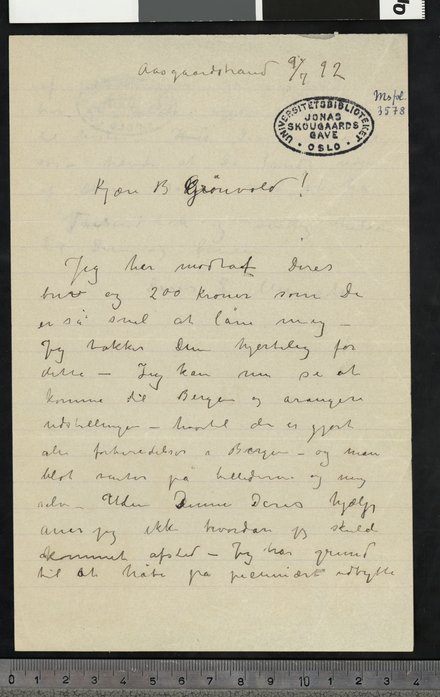 Aasgaardstrand 9/7 92
Ms fol.
3578
UNIVERSITETSBIBLIOTEKET
JONAS
SKOUGAARDS
GAVE
OSLO
Kjære B Grönvold!
Jeg har modtat Deres
brev og 200 Kroner som De
er så snil at låne mig –
Jeg takker Dem hjertelig for
dette – Jeg kan nu se at
komme til Bergen og arangere
udstillingen – hvortil der er gjort
alle forberedelser i Bergen – og man
blot venter på billederne og mig
selv – Uden Denne Deres hjælp
aner jeg ikke hvordan jeg skulde
kommet afsted – Jeg har grund
til at håbe på pecuniært udbytte
0 1 2 3 4 5 6 7 8 9 10 11 12 13